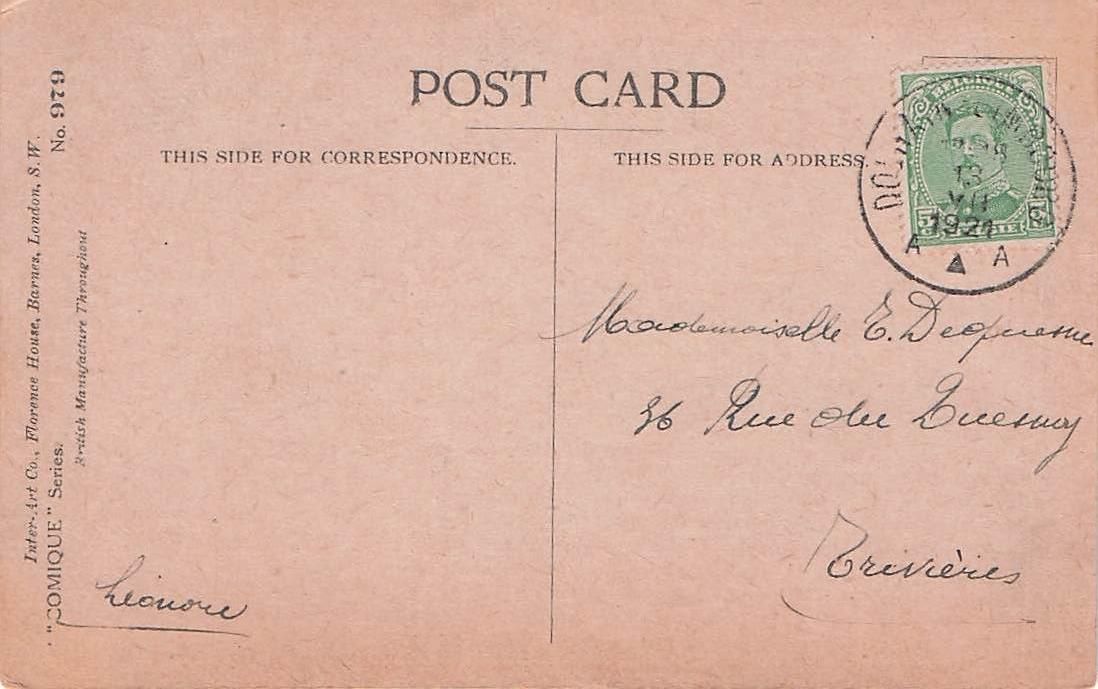 POST CARD
THIS SIDE FOR CORRESPONDENCE.
THIS SIDE FOR ADDRESS.
BELGIQUE
13
VII
1921
A A
5
Mademoiselle E. Dequesne
36 Rue du Quesnoy
Trivières
Léonore
Inter-Art Co., Florence House, Barnes, London, S.W.
"COMIQUE" Series. No. 979
British Manufacture Throughout